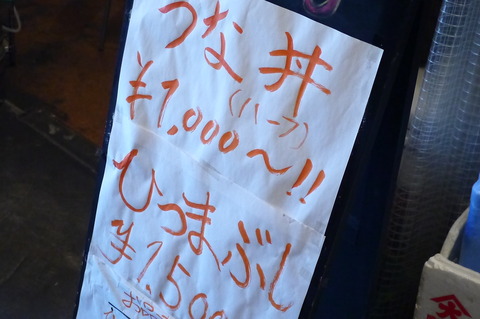 つな丼
(ハーフ)
¥1,000～!!
ひつまぶし
¥1,500